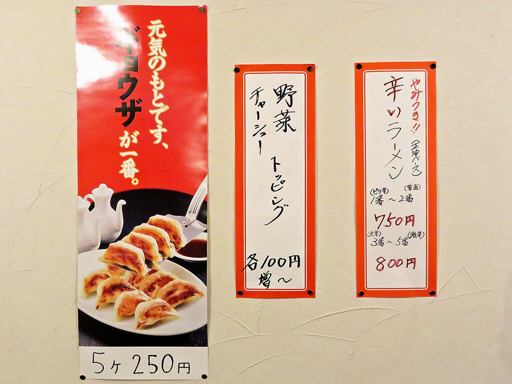 元気のもとです、
ギョウザが一番。
5ヶ 250円
野菜
チャーシュー
トッピング
各100円
増〜
やみつき!!
辛いラーメン
1番〜2番
750円
(大辛)
3番〜5番
800円